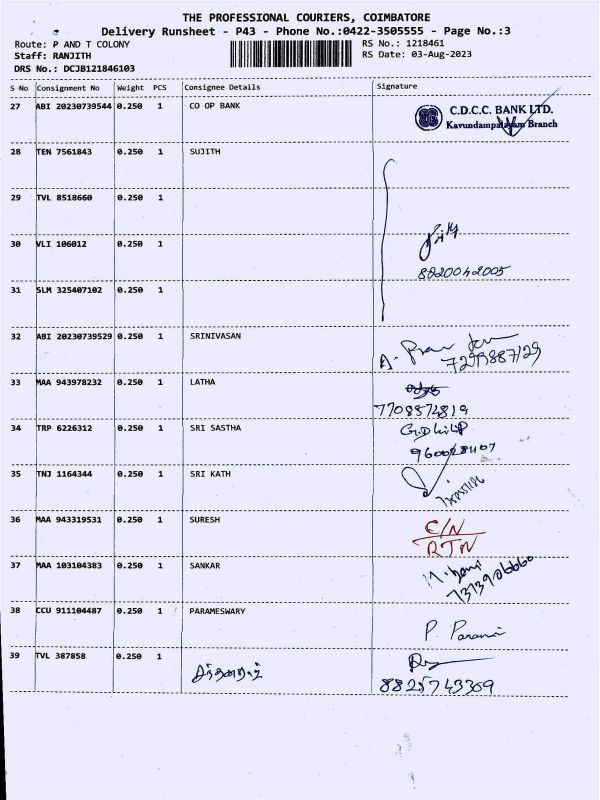 THE PROFESSIONAL COURIERS, COIMBATORE
Delivery Runsheet - P43 - Phone No.:0422-3505555 - Page No.:3
Route: P AND T COLONY
RS No.: 1218461
Staff: RANJITH
RS Date: 03-Aug-2023
DRS No.: DCJB121846103
S No Consignment No Weight PCS Consignee Details Signature
27 ABI 20230739544 0.250 1 CO OP BANK
C.D.C.C. BANK LTD.
Kavundampalayam Branch
28 TEN 7561843 0.250 1 SUJITH
29 TVL 8518660 0.250 1
30 VLI 106012 0.250 1
8820042005
31 SLM 325407102 0.250 1
32 ABI 20230739529 0.250 1 SRINIVASAN
7299887129
33 MAA 943978232 0.250 1 LATHA
7708574819
34 TRP 6226312 0.250 1 SRI SASTHA
35 TNJ 1164344 0.250 1 SRI KATH
36 MAA 943319531 0.250 1 SURESH
C/N
RTN
37 MAA 103104383 0.250 1 SANKAR
38 CCU 911104487 0.250 1 PARAMESWARY
P.
39 TVL 387858 0.250 1
8825743369